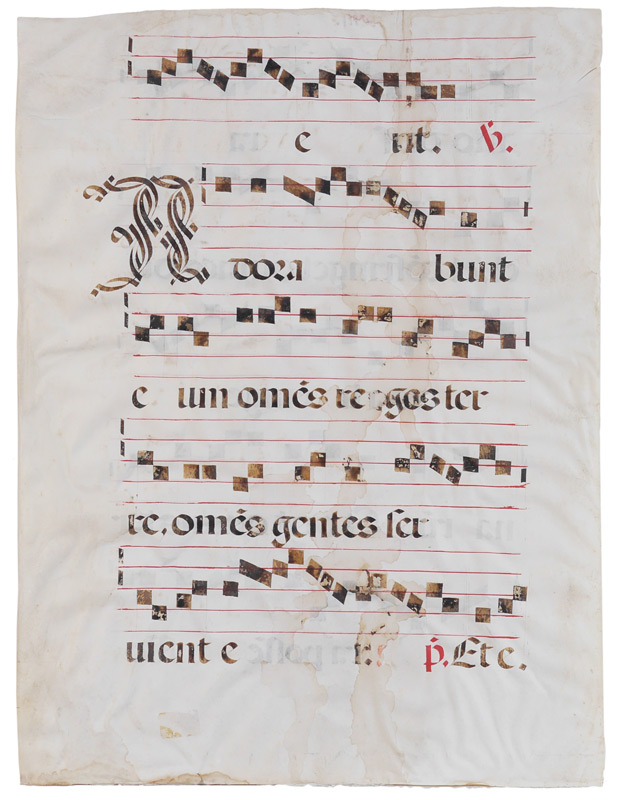 e nt. ℣.
Adora bunt
e um om̃es re ges ter
re. om̃es gentes ser
uient e i: p̃. Et e.